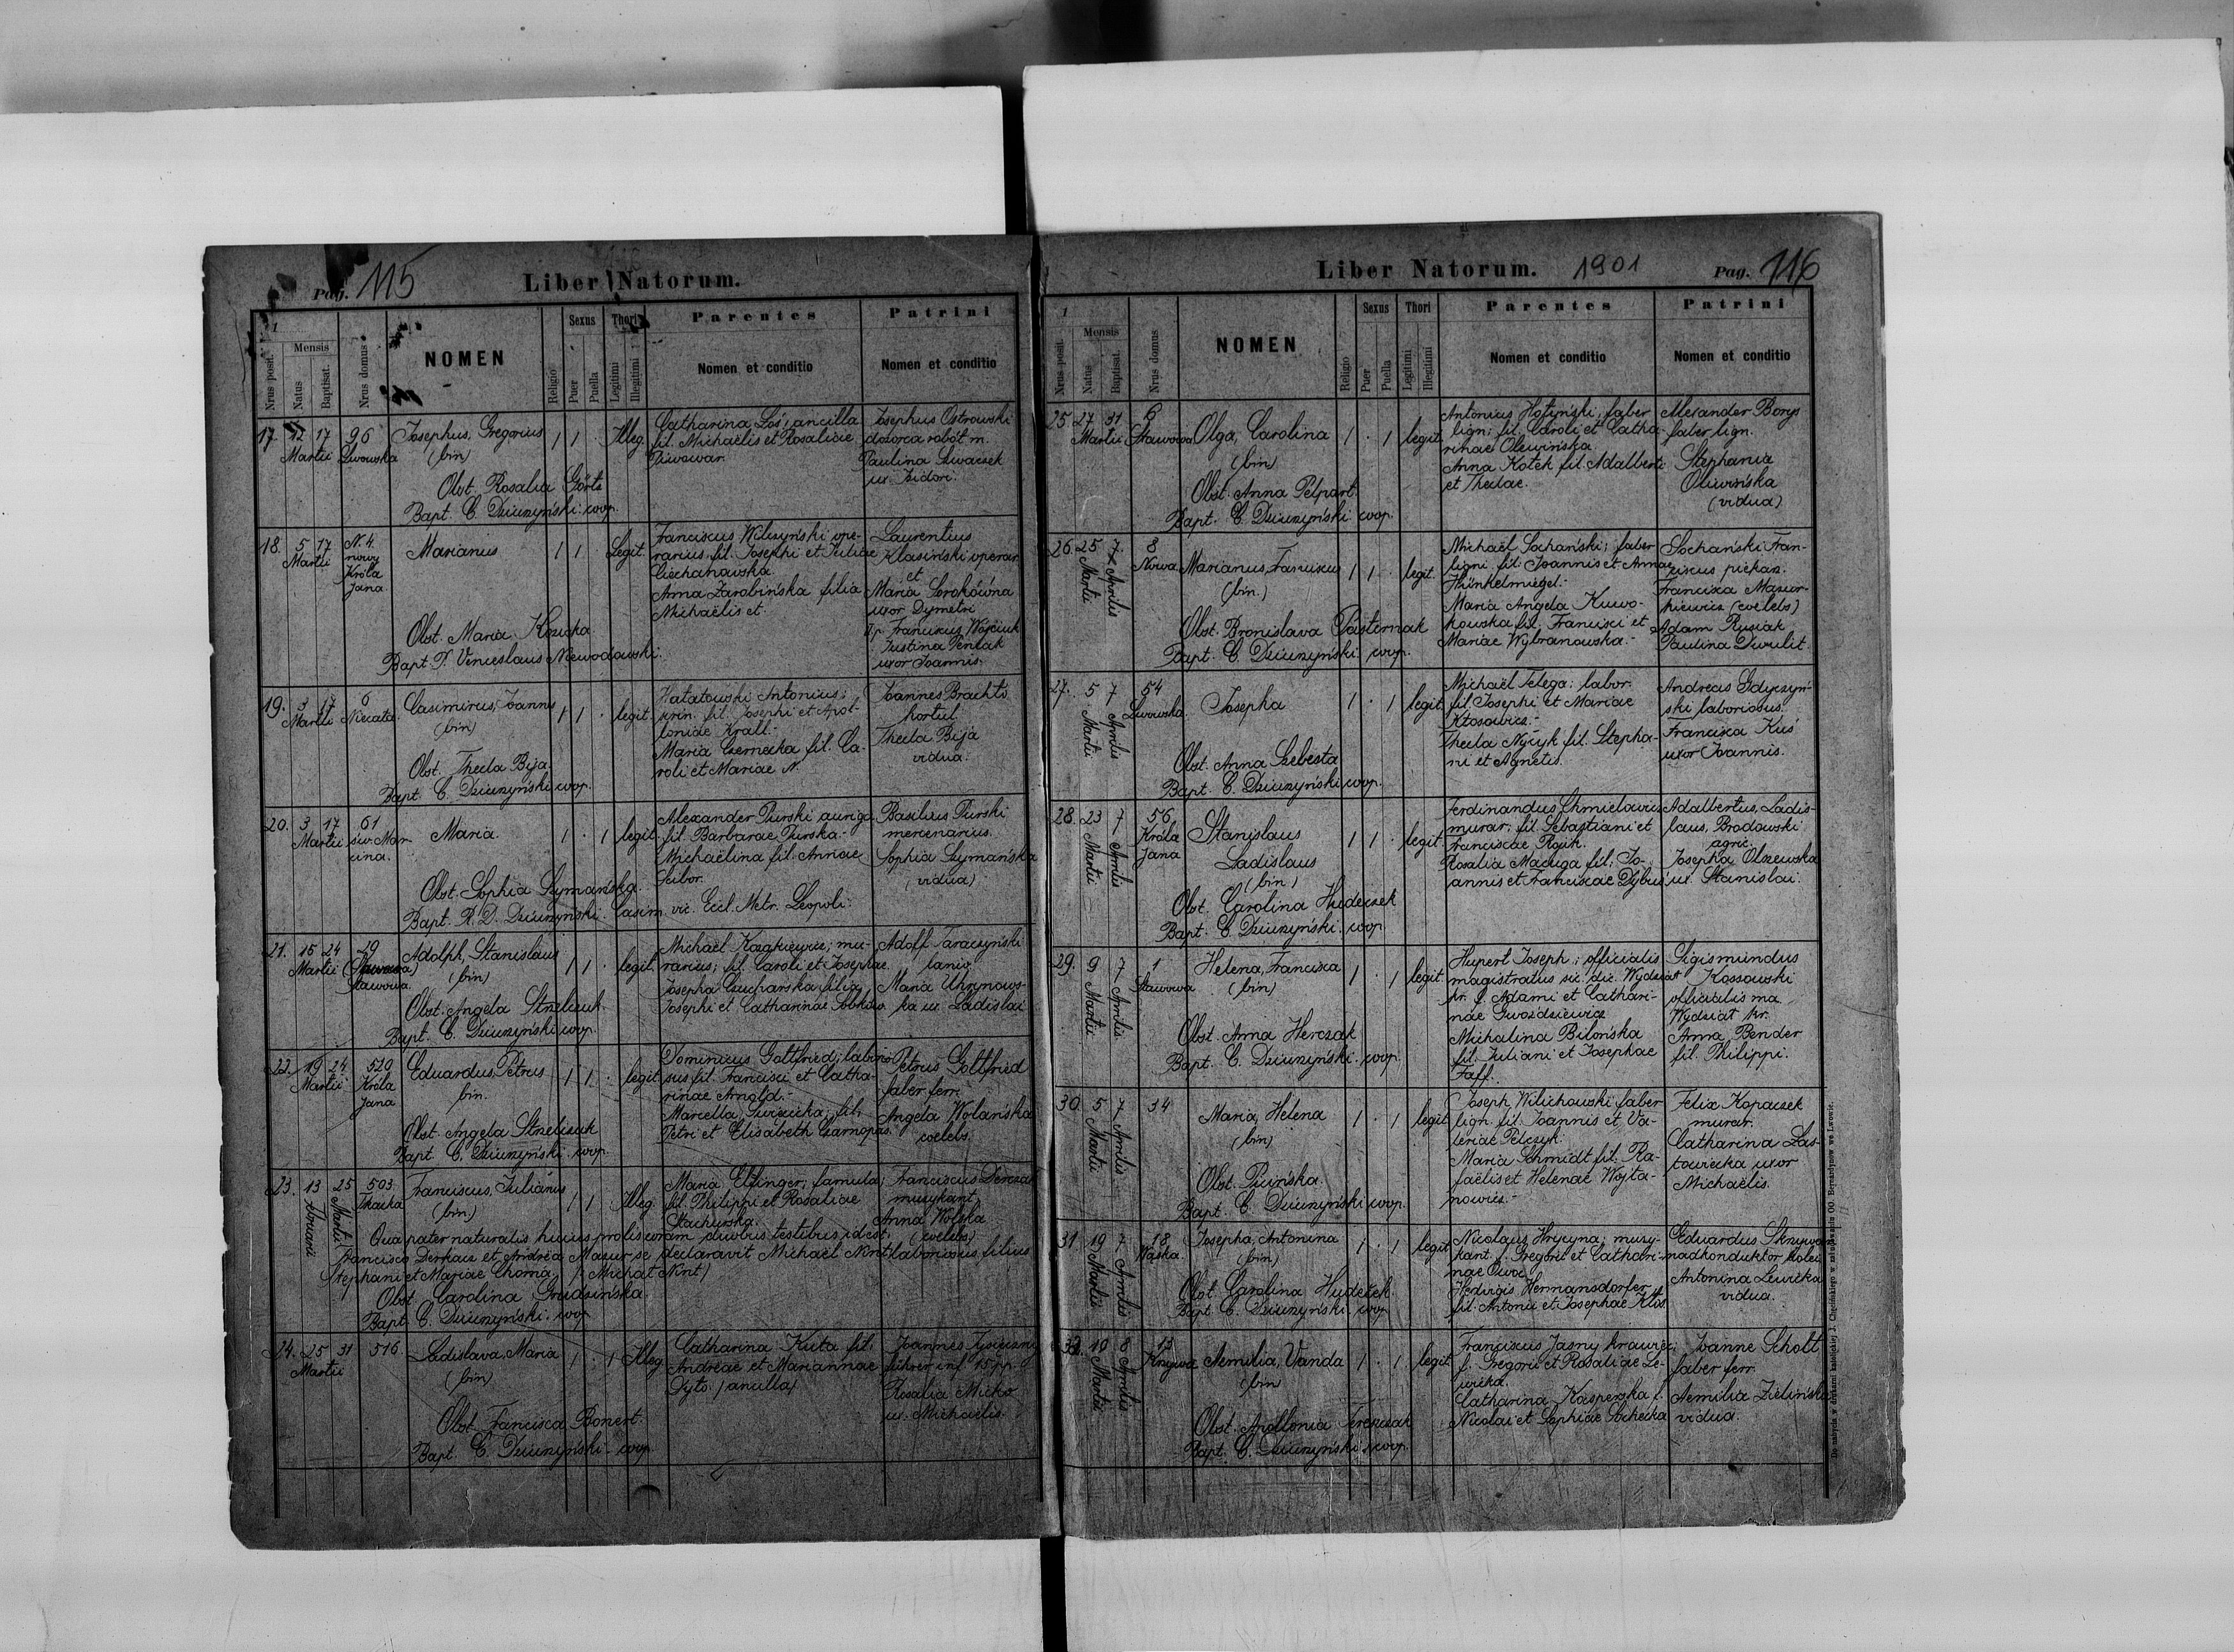 Pag. 115
Liber Natorum.
1
Nrus posit.
Mensis
Natus
Baptisat.
Nrus domus
NOMEN
Religio
Sexus
Puer
Puella
Thori
Legitimi
Illegitimi
Parentes
Nomen et conditio
Patrini
Nomen et conditio
17. 12 17 96 Josephus, Gregorius 1 1 . Illeg. Catharina Łoś, ancilla Josephus Ostrowski
Martii Lwowska (bin) fil. Michaëlis et Rosaliae dozorca robot m.
Piwowar. Paulina Szwaczek
Obst. Rosalia Görtz ux. Isidori.
Bapt. C. Dziurzyński coop.
18. 5 17 N. 4. Marianus 1 1 . Legit. Franciscus Wilczyński ope- Laurentius
Martii nowy rarius fil. Josephi et Juliae Klasiński operar.
Króla Ciechanowska. et
Jana Anna Zarobińska filia Maria Sorokówna
Michaëlis et. uxor Dymetri
Obst. Maria IIp. Franciscus Wójciuk
Bapt. P. Venceslaus Niewodowski. Justina Penčak
uxor Joannis.
19. 3 17 6 Casimirus, Joannes 1 1 . legit. Antonius; Joannes
Martii Niecała (bin) fil. Josephi et Apol- hortul.
loniae Krall. Thecla Bija
Maria Czernecka fil. Ca- vidua.
Obst. Thecla Bija. roli et Mariae N.
Bapt. C. Dziurzyński coop.
20. 3 17 61 Maria. 1 . 1 legit. Alexander Purski auriga Basilius Purski
Martii św. Mar- fil. Barbarae Purska. mercenarius.
cina. Michaëlina fil. Annae Sophia Szymańska
Scibor. (vidua)
Obst. Sophia Szymańska.
Bapt. R. D. Dziurzyński Casim. vic. Eccl. Metr. Leopoli.
21. 15 24 29 Adolph, Stanislaus 1 1 . legit. Michaël Kozakiewicz; mu- Adolf Taraczyński
Martii Stawowa. (bin) rarius; fil. Caroli et Josephae. lanio
Josepha filia Maria Uhrynows-
Obst. Angela Strzelczuk. Josephi et Catharinae ka ux. Ladislai
Bapt. C. Dziurzyński coop.
22. 19 24 520 Eduardus, Petrus 1 1 . legit. Dominicus Gottfried; laborio- Petrus Gottfried
Martii Króla bin. sus fil. Francisci et Catha- faber ferr.
Jana rinae Arnold. Angela Wolańska
Marcella, fil. coelebs.
Obst. Angela Strzelczuk Petri et Elisabeth Czarnopas.
Bapt. C. Dziurzyński coop.
23. 13 25 503 Franciscus, Julianus 1 1 . Illeg. Maria Elsinger; famula; Franciscus Derkacz
Februarii Martii Tkacka (bin.) fil. Philippi et Rosaliae muzykant
Stachurska. Anna Wolska
Qua pater naturalis huius prolis coram duobus testibus, id est: (coelebs)
Francisco Derkacz et Andrea Mazur se declaravit Michaël Nint, laboriosus, filius
Stephani et Mariae Choma. /: Michał Nint /
Obst. Carolina Grudzińska.
Bapt. C. Dziurzyński. coop.
24. 25 31 516 Ladislava, Maria 1 . 1 Illeg. Catharina Kuta fil. Joannes
Martii (bin) Andreae et Mariannae führer inf. 15 pp.
Dyto. / ancilla / Rosalia Micko
Obst. Francisca Bonert. ux. Michaëlis.
Bapt. C. Dziurzyński. coop.
Liber Natorum. 1901 Pag. 116
1
Nrus posit.
Mensis
Natus
Baptisat.
Nrus domus
NOMEN
Religio
Sexus
Puer
Puella
Thori
Legitimi
Illegitimi
Parentes
Nomen et conditio
Patrini
Nomen et conditio
25. 27 31 6 Olga, Carolina 1 . 1 legit. Antonius Hołyński, faber Alexander Borys
Martii Stawowa (bin) lign; fil. Caroli et Catha- faber lign.
rinae Oliwińska Stephania
Obst. Anna Petpart. Anna Kotek fil. Adalberti Oliwińska
Bapt. C. Dziurzyński coop. et Theclae. (vidua)
26. 25 7 8 Marianus, Franciscus 1 1 . legit. Michaël Sochański; faber Sochański Fran-
Martii Aprilis Nowa (bin.) ligni fil. Joannis et Annae ciscus piekar.
Hünkelmügel. Francisca Mazur-
Maria Angela Kuwo- kiewicz (coelebs)
Obst. Bronislava Pasternak kowska fil. Francisci et Adam Rusiak
Bapt. C. Dziurzyński coop. Mariae Wybranowska. Paulina Dwulit.
27. 5 7 54 Josepha 1 . 1 legit. Michaël Telega; labor. Andreas Gdyczyń-
Martii Aprilis Lwowska. fil. Josephi et Mariae ski laboriosus.
Kłosowicz. Francisca Kuś
Obst. Anna Szebesta Thecla Nyčyk fil. Stepha- uxor Joannis.
Bapt. C. Dziurzyński coop. ni et Agnetis.
28. 23 7 56 Stanislaus 1 1 . legit. Ferdinandus Chmielowicz Adalbertus, Ladis-
Martii Aprilis Króla Ladislaus murar; fil. Sebastiani et laus, Brodowski
Jana (bin) Franciscae agric.
Rosalia Maciuga fil. Jo- Josepha Olszewska
Obst. Carolina Hudeczek annis et Franciscae Dybuś ux. Stanislai.
Bapt. C. Dziurzyński coop.
29. 9 7 1 Helena, Francisca 1 . 1 legit. Hupert Joseph; officialis Sigismundus
Martii Aprilis Stawowa (bin) magistratus sic. dic. Wydział Kossowski
kr. f. Adami et Cathari- officialis ma.
nae Gwoździewicz Wydział kr.
Obst. Anna Herczak Michalina Bilońska Anna Bender
Bapt. C. Dziurzyński. coop. fil. Juliani et Josephae fil. Philippi.
Faff.
30. 5 7 34 Maria, Helena 1 . 1 legit. Joseph Wilichowski faber Felix Kopaczek
Martii Aprilis (bin) lign. fil. Joannis et Va- murar.
leriae Pelczyk. Catharina Las-
Obst. Puińska. Maria Schmidt fil. Ra- towiecka uxor
Bapt. C. Dziurzyński coop. faëlis et Helenae Wojta- Michaëlis.
nowicz.
31 19 7 18 Josepha, Antonina 1 . 1 legit. Nicolaus Hrycyna; muzy- Eduardus
Martii Aprilis Wąska (bin) kant f. Gregorii et Cathari- nadkonduktor kolei
nae Antonina Lewicka
Obst. Carolina Hudeček Hedvigis Hermansdorfer vidua.
Bapt. C. Dziurzyński coop. fil. Antonii et Josephae
32. 10 8 17 Aemilia, Vanda 1 . 1 legit. Franciscus Jasny krawiec; Joanne Scholt
Martii Aprilis Krzywa (bin) f. Gregorii et Rosaliae Le- faber ferr.
wicka. Aemilia Zielińska
Obst. Apollonia Ferenczak Catharina Kasperska f. vidua.
Bapt. C. Dziurzyński coop. Nicolai et Sophiae Sochecka